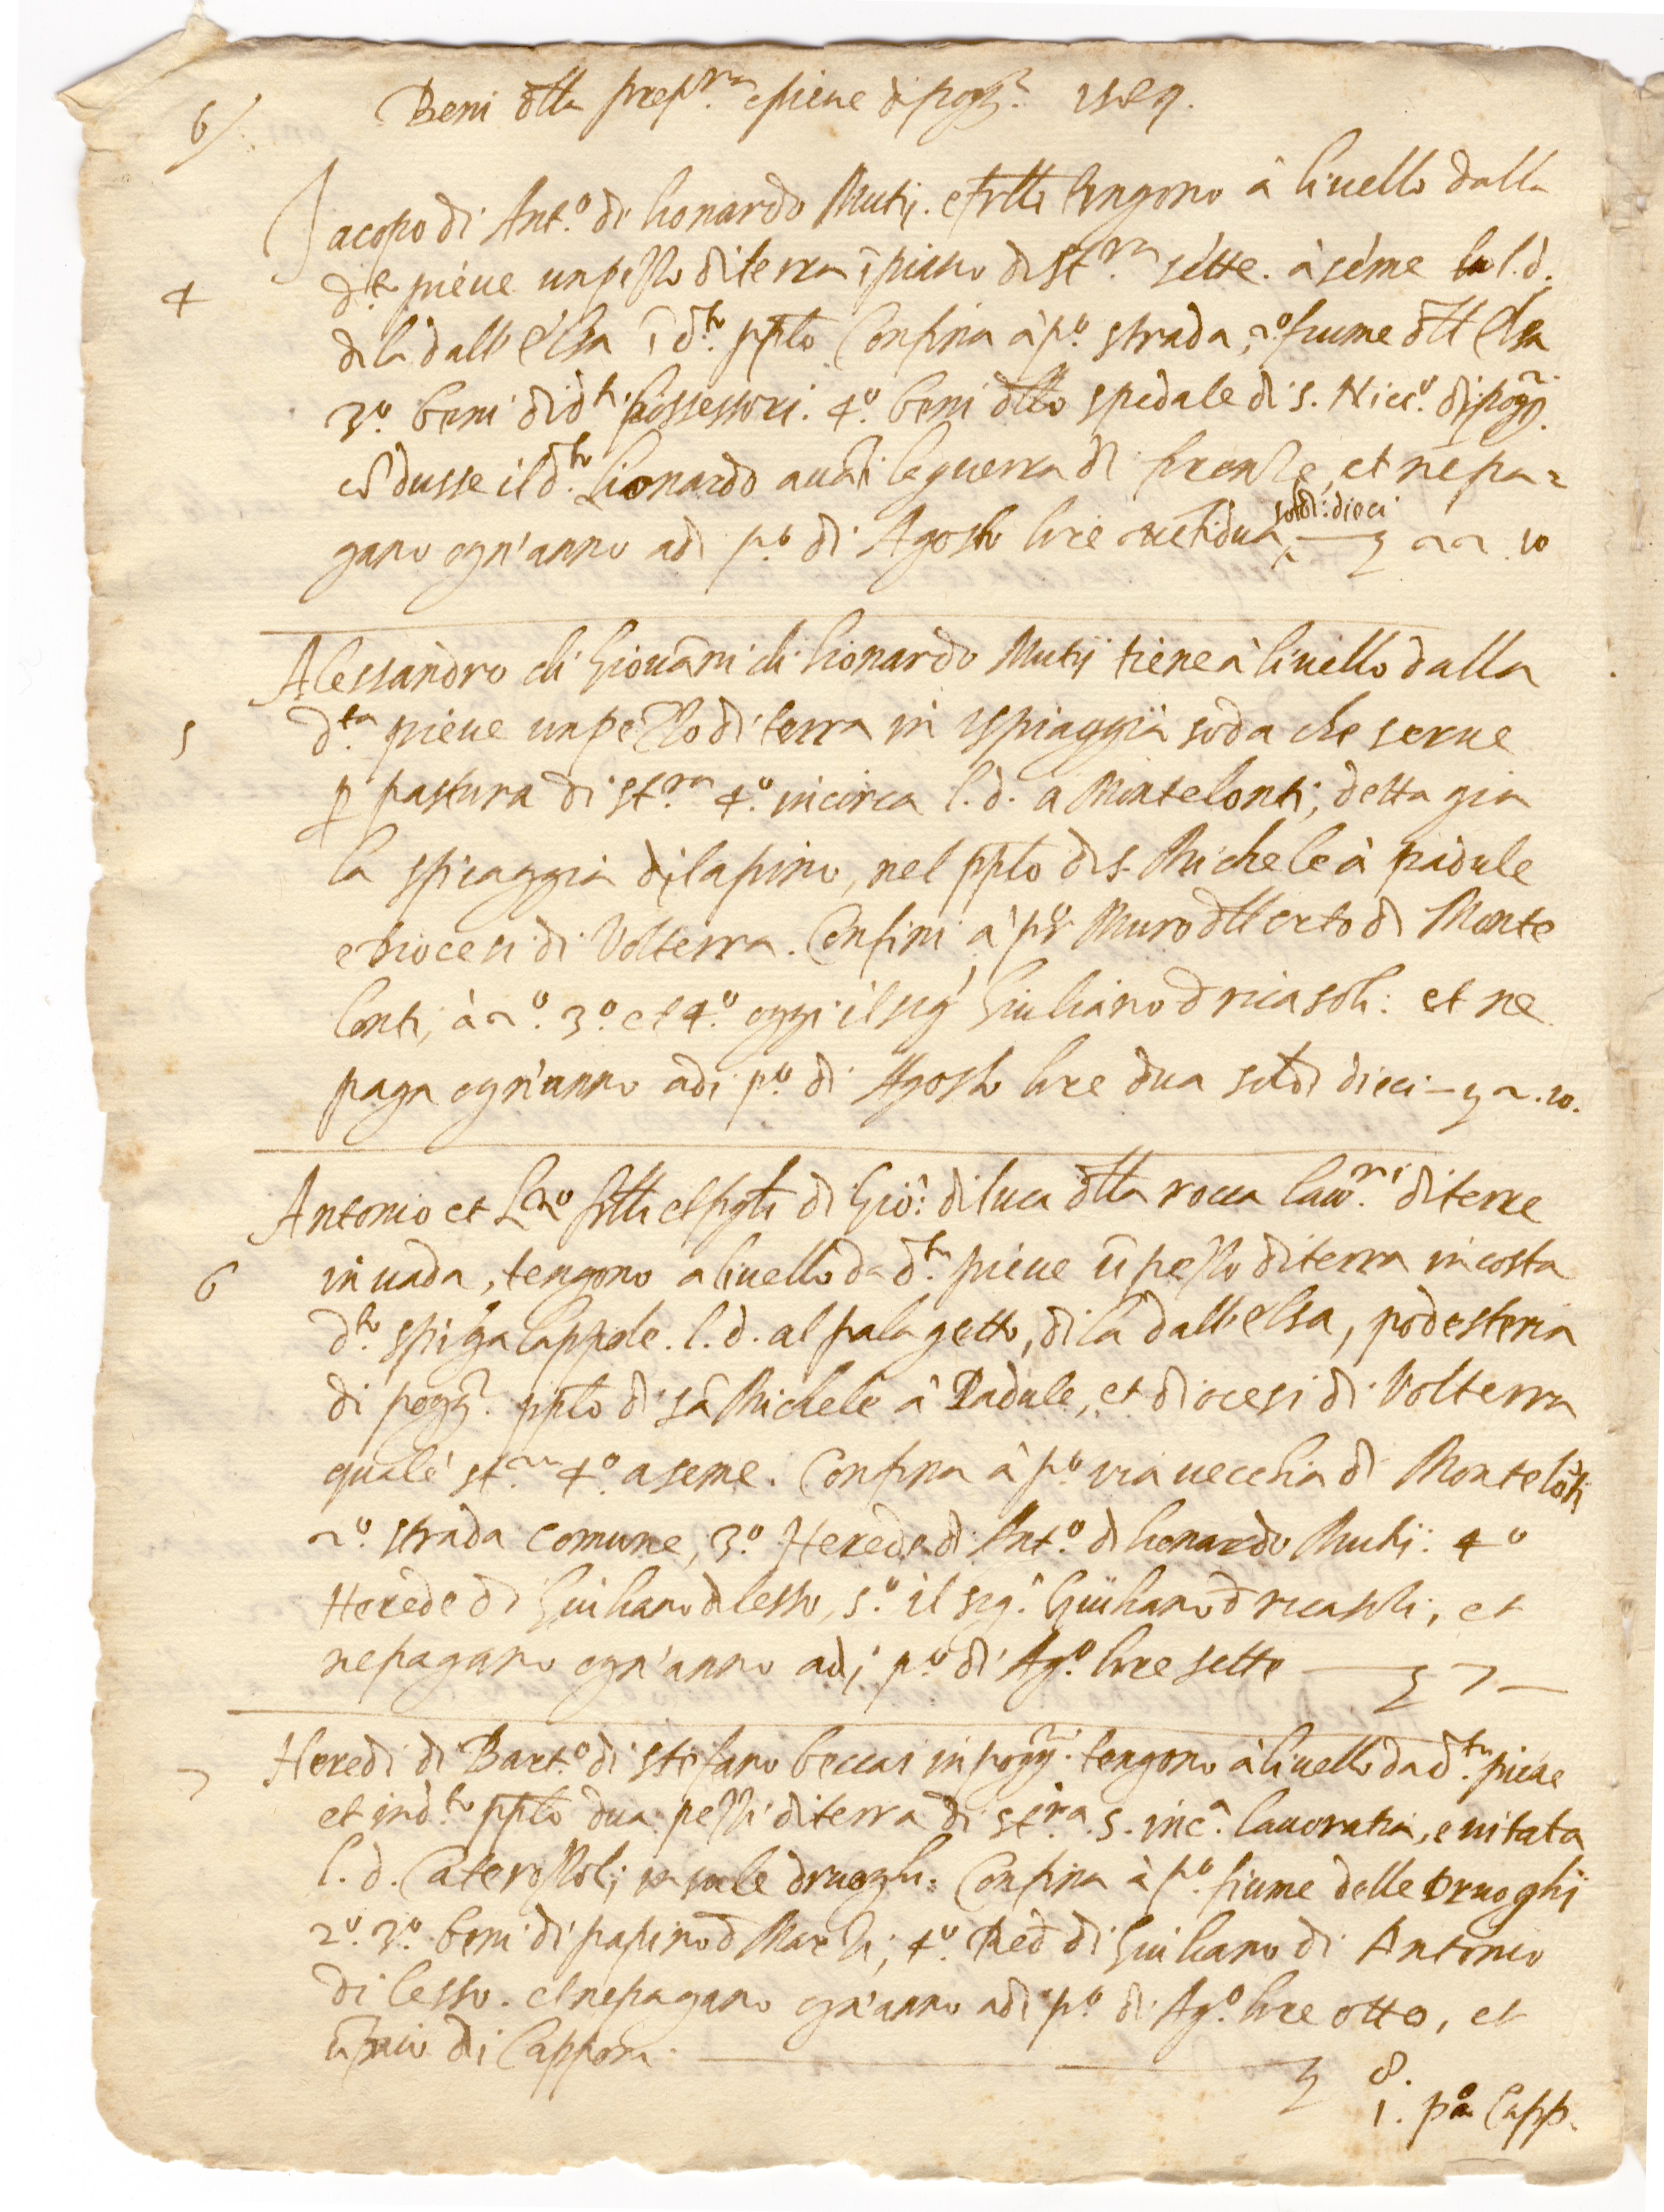 6/
Beni dlla prep.ra e pieue di pogg.i 1589.
Jacopo di Ant.o di Lionardo Mutij. e frlli tengono à liuello dalla
4
d.ta pieue un pezzo di terra ī piano di st.ra sette. à séme l.d.
di là dall'Elsa ī d.to pplo Confina à p.o strada, 2.o fiume dll Elsa
3.o beni di d.ti possessori. 4.o beni dllo spedale di S. Nicc.o di pogg.
cōdusse il d.to Lionardo auāti la guerra di firenze, et ne pa=
gano ogn'anno adi p.o di Agosto lire uētidua, soldi: dieci 22. 10
Alessandro di Giouāni di Lionardo Mutij tiene à liuello dalla
5
d.ta pieue un pezzo di terra in ispiaggia soda che serue
p pastura di st.ra 4.o incirca l.d. a Montelonti; detta gia
la spiaggia di lapino, nel pplo di S. Michele à padule
e diocesi di Volterra. Confini à p.o Muro dll orto di Monte
lonti, à 2.o 3.o et 4.o oggi il sig.r Giuliano d ricasoli: et ne
paga ogn'anno adi p.o di Agosto lire dua soldi dieci – 2. 10.
Antonio et frlli et figli di Giō: di luca dlla rocca lauo.ri di terre
6
in uada, tengono a liuello da d.ta pieue ū pezzo di terra in costa
d.to l.d. al palagetto, di là dall'elsa, podesteria
di pogg.i pplo di sā Michele à Padule, et diocesi di Volterra
quale st.ra 4.o a seme. Confina à p.o via uecchia di Montelōti
2.o strada comune, 3.o Herede di Ant.o di Lionardo Mutij: 4.o
Herede di Giuliano di lesso, 5.o il sig.r Giuliano d ricasoli; et
ne pagano ogn'anno adi p.o di Ag.o lire sette 7 –
Heredi di Bart.o di stefano beccai in pogg.i tengono à liuello da d.ta pieue
7
et in d.to pplo dua pezzi di terra di st.ra 5. inc.a lauoratia, e uitata
l.d. druoghi. Confina à p.o fiume delle Druoghi
2.o 3.o beni di papino d 4.o Red di Giuliano di Antonio
di lesso. et ne pagano ogn'anno adi p.o di Ag.o lire otto, et
ū paio di Capponi. 8.
1. pa Capp.